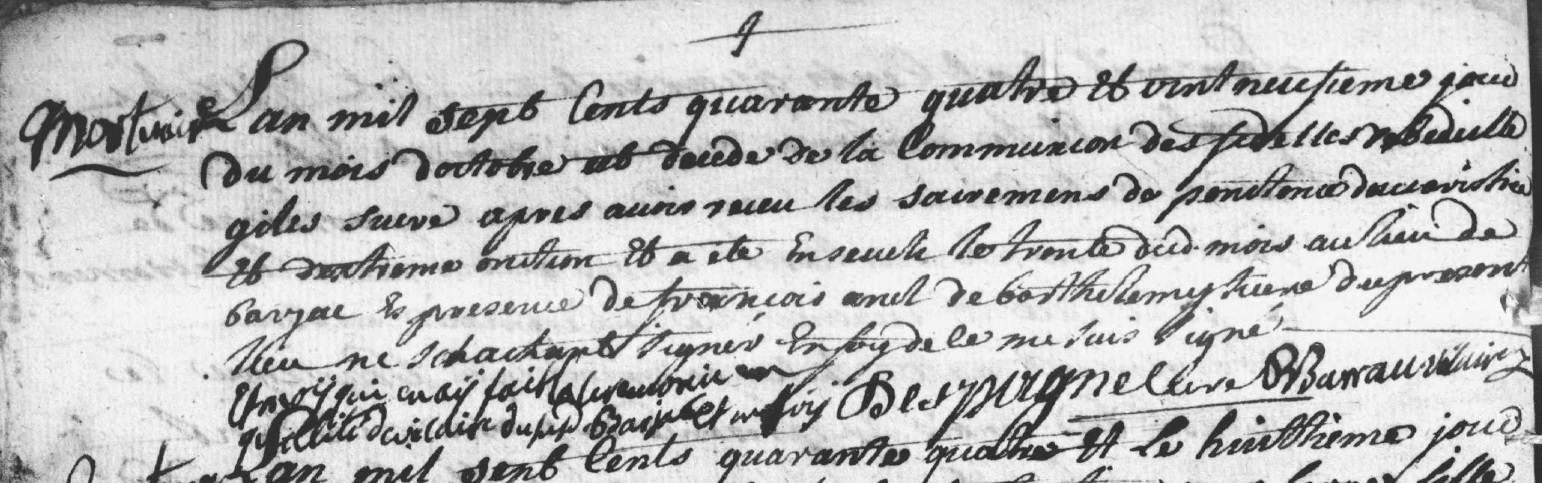 Mortuaire
Lan mil sept Cents quarante quatre Et vint neufieme jour
du mois doctobre est decede de la Communion des fidelles
giles sucre apres avoir receu les sacremens de penitence deucaristie
Et dextreme onction Et a ete Enseveli le trente dud. mois au lieu de
barjac En presence de françois anel de barthelemy sucre du present
lieu ne schachant signer En foy de ce me suis signé
Et moy qui en ay fait la ceremonie en
qualité de vicaire dud Barjac Et en foy Despuigne Cure Barrau vicaire
Lan mil sept Cents quarante quatre Et le huitieme jour